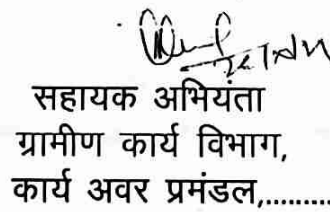 सहायक अभियंता
ग्रामीण कार्य विभाग,
कार्य अवर प्रमंडल,..........